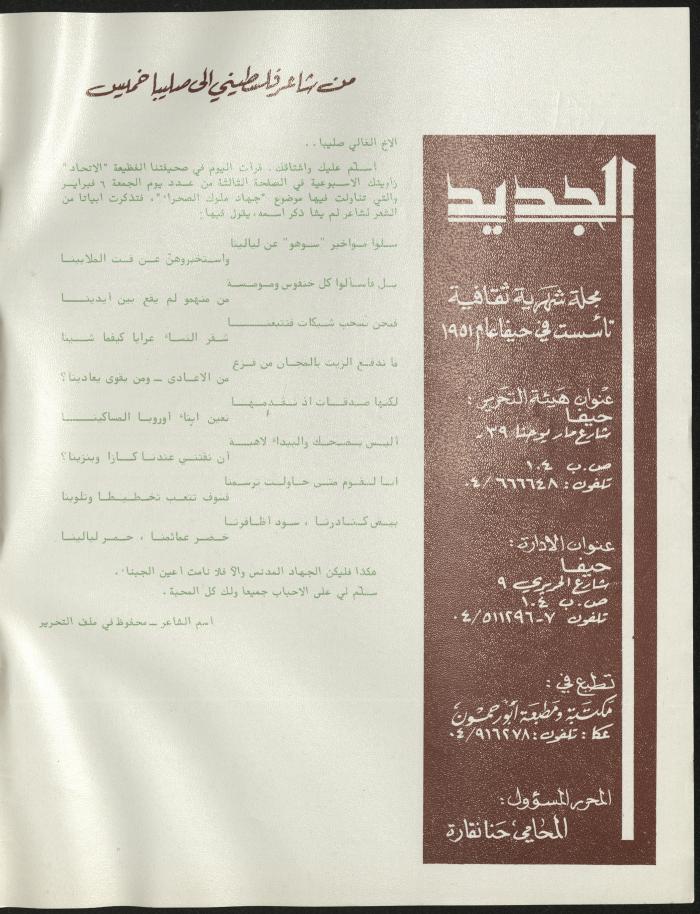 من شاعر فلسطيني الى صليبا خميس
الاخ الغالي صليبا . .
أسلّم عليك واشتاقك . قرأت اليوم في صحيفتنا الفظيعة "الاتحاد"
زاويتك الاسبوعية في الصفحة الثالثة من عدد يوم الجمعة ٦ فبراير
والتي تناولت فيها موضوع "جهاد ملوك الصحراء" ، فتذكرت ابياتا من
الشعر لشاعر لم يشأ ذكر اسمه، يقول فيها :
سلوا مواخير "سوهو" عن ليالينا
واستخبروهنّ عن فت الملايينا
بل فاسألوا كل خنفوس ومومسة
من منهمو لم يقع بين أيدينا
فنحن نسحب شيكات فتتبعنا
شقر النساء عرايا كيفما شينا
ما ندفع الزيت بالمجان من فزع
من الاعادي ــ ومن يقوى يعادينا ؟
لكنها صدقات اذ نقدمها
نعين ابناء اوروبا المساكينا
أليس يضحك والبيداء لاهبة
أن نقتني عندنا كازا وبنزينا ؟
انا لقوم متى حاولت ترسمنا
فسوف تتعب تخطيطا وتلوينا
بيض كنادرنا ، سود أظافرنا
خضر عمائمنا ، حمر ليالينا
هكذا فليكن الجهاد المدنس والاّ فلا نامت أعين الجبناء .
سلّم لي على الاحباب جميعا ولك كل المحبة .
اسم الشاعر ــ محفوظ في ملف التحرير
الجديد
مجلة شهرية ثقافية
تأسست في حيفا عام ١٩٥١
عنوان هيئة التحرير :
حيفا
شارع مار يوحنا ٣٩
ص.ب ١٠٤
تلفون : ٠٤/٦٦٦٦٤٨
عنوان الادارة :
حيفا
شارع الحريري ٩
ص.ب ١٠٤
تلفون ٧-٠٤/٥١١٢٩٦
تطبع في :
مكتبة ومطبعة أبو رحمون
عكا : تلفون : ٠٤/٩١٦٢٧٨
المحرر المسؤول :
المحامي حنا نقارة